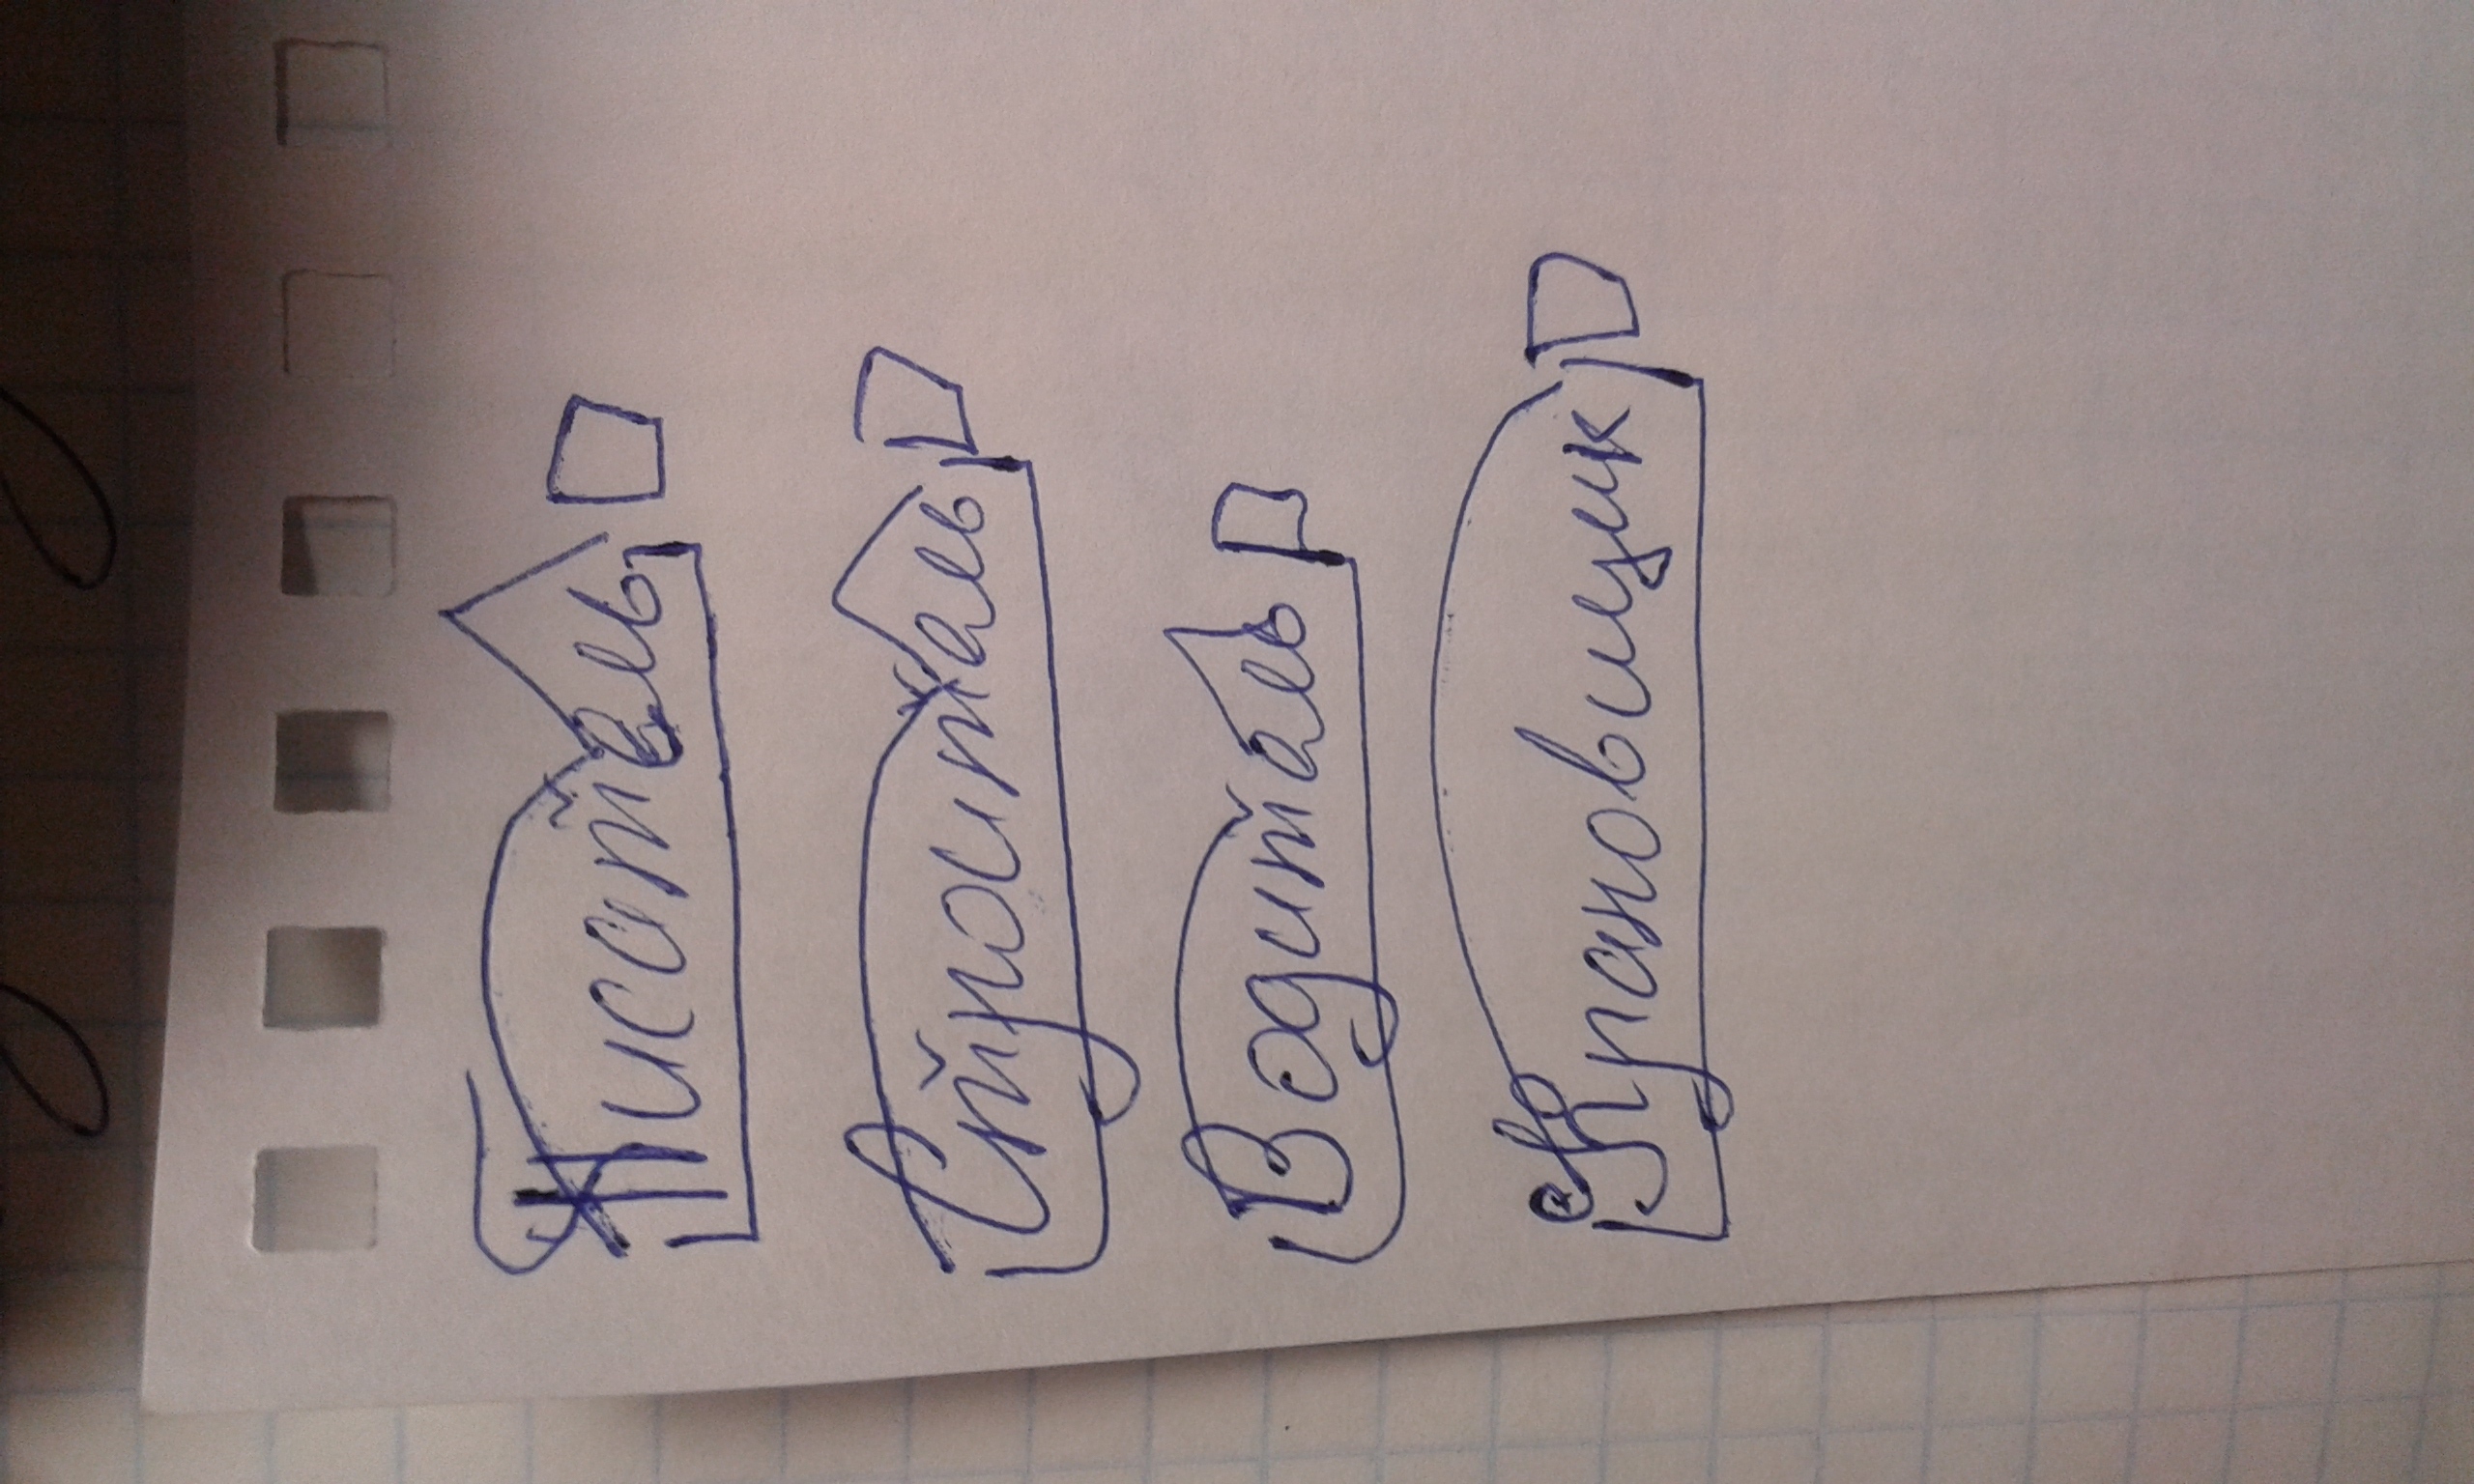 Писатель
Строиталь
Водиталь
Крановищик